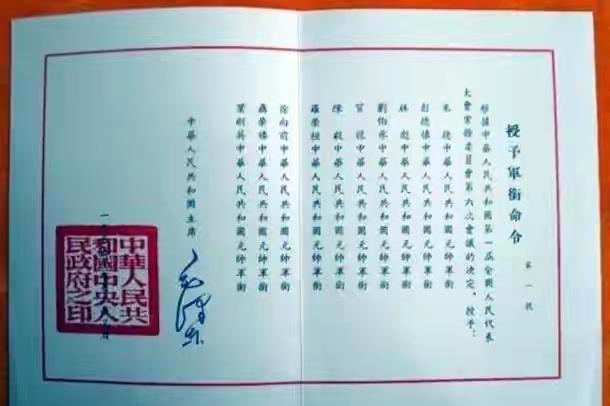 授予軍銜命令
第一號
根據中華人民共和國第一屆全國人民代表
大會常務委員會第六次會議的決定,授予:
朱德中華人民共和國元帥軍銜
彭德懷中華人民共和國元帥軍銜
林彪中華人民共和國元帥軍銜
劉伯承中華人民共和國元帥軍銜
賀龍中華人民共和國元帥軍銜
陳毅中華人民共和國元帥軍銜
羅榮桓中華人民共和國元帥軍銜
徐向前中華人民共和國元帥軍銜
聶榮臻中華人民共和國元帥軍銜
葉劍英中華人民共和國元帥軍銜
中華人民共和國主席
毛澤東
中華人民共
和國中央人
民政府之印